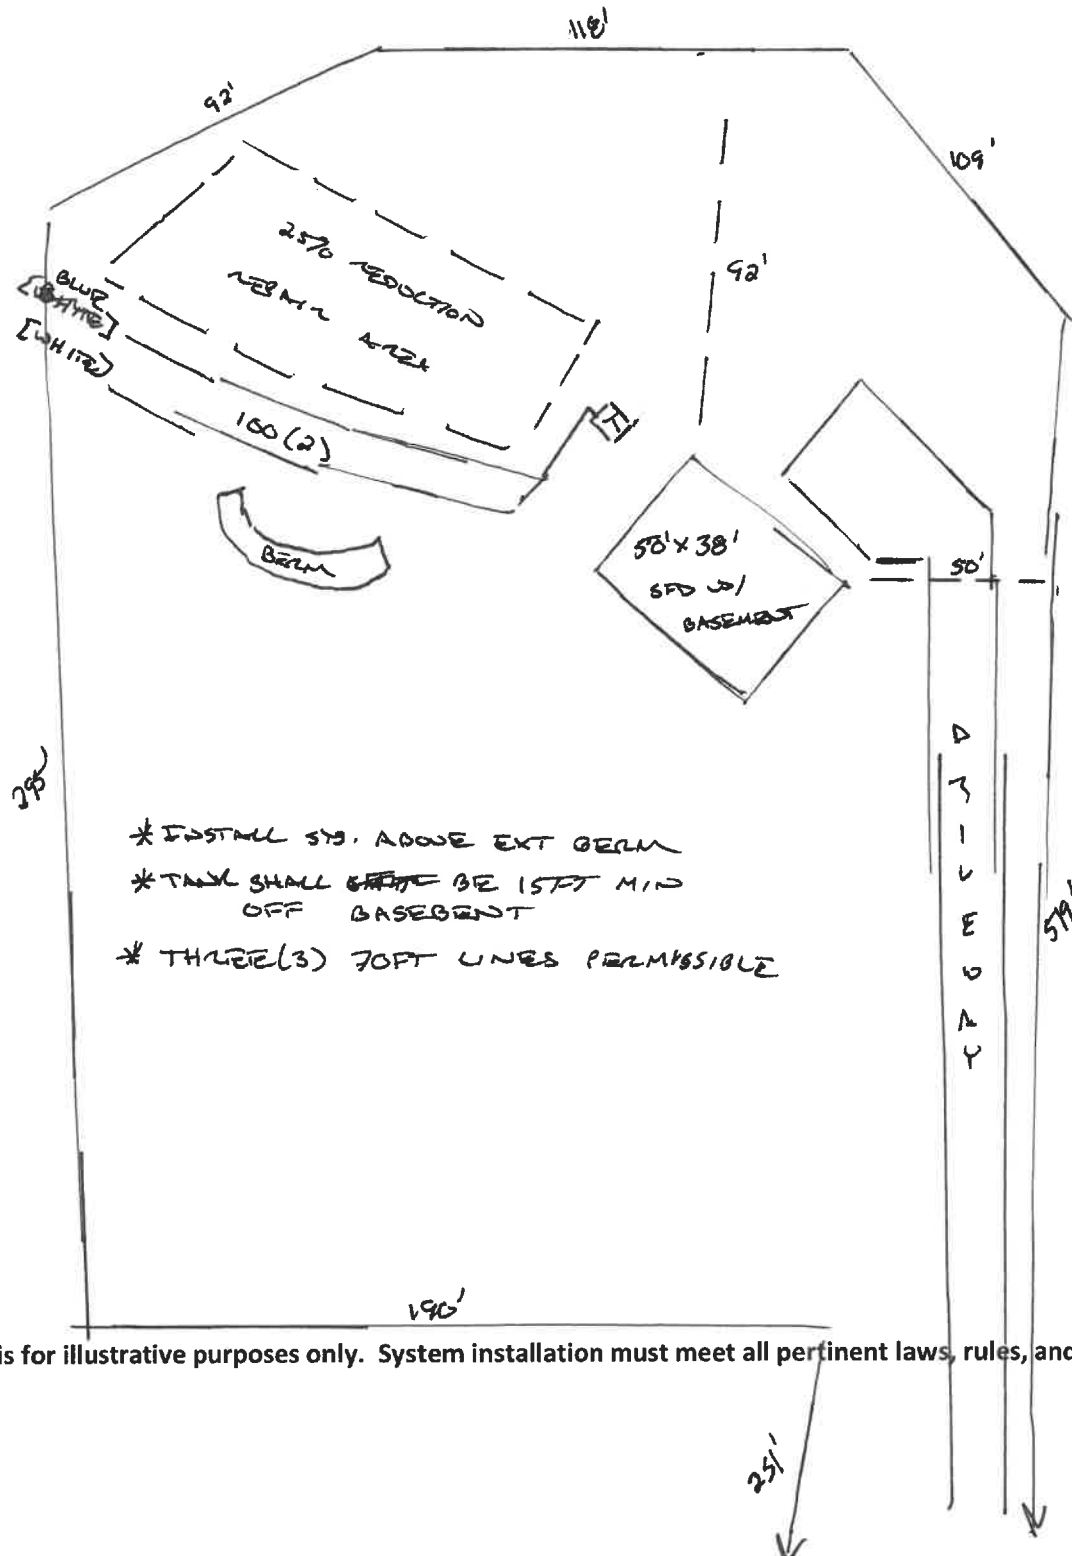 118'
92'
109'
25% REDUCTION
REPAIR AREA
92'
BLUE
[WHITE]
100(2)
T
BERM
50'x38'
SFD W/
BASEMENT
50'
DRIVEWAY
295
* INSTALL SYS. ABOVE EXT BERM
* TANK SHALL BE 15FT MIN
OFF BASEBENT
* THREE(3) 70FT LINES PERMISSIBLE
579'
190'
is for illustrative purposes only. System installation must meet all pertinent laws, rules, and
251'